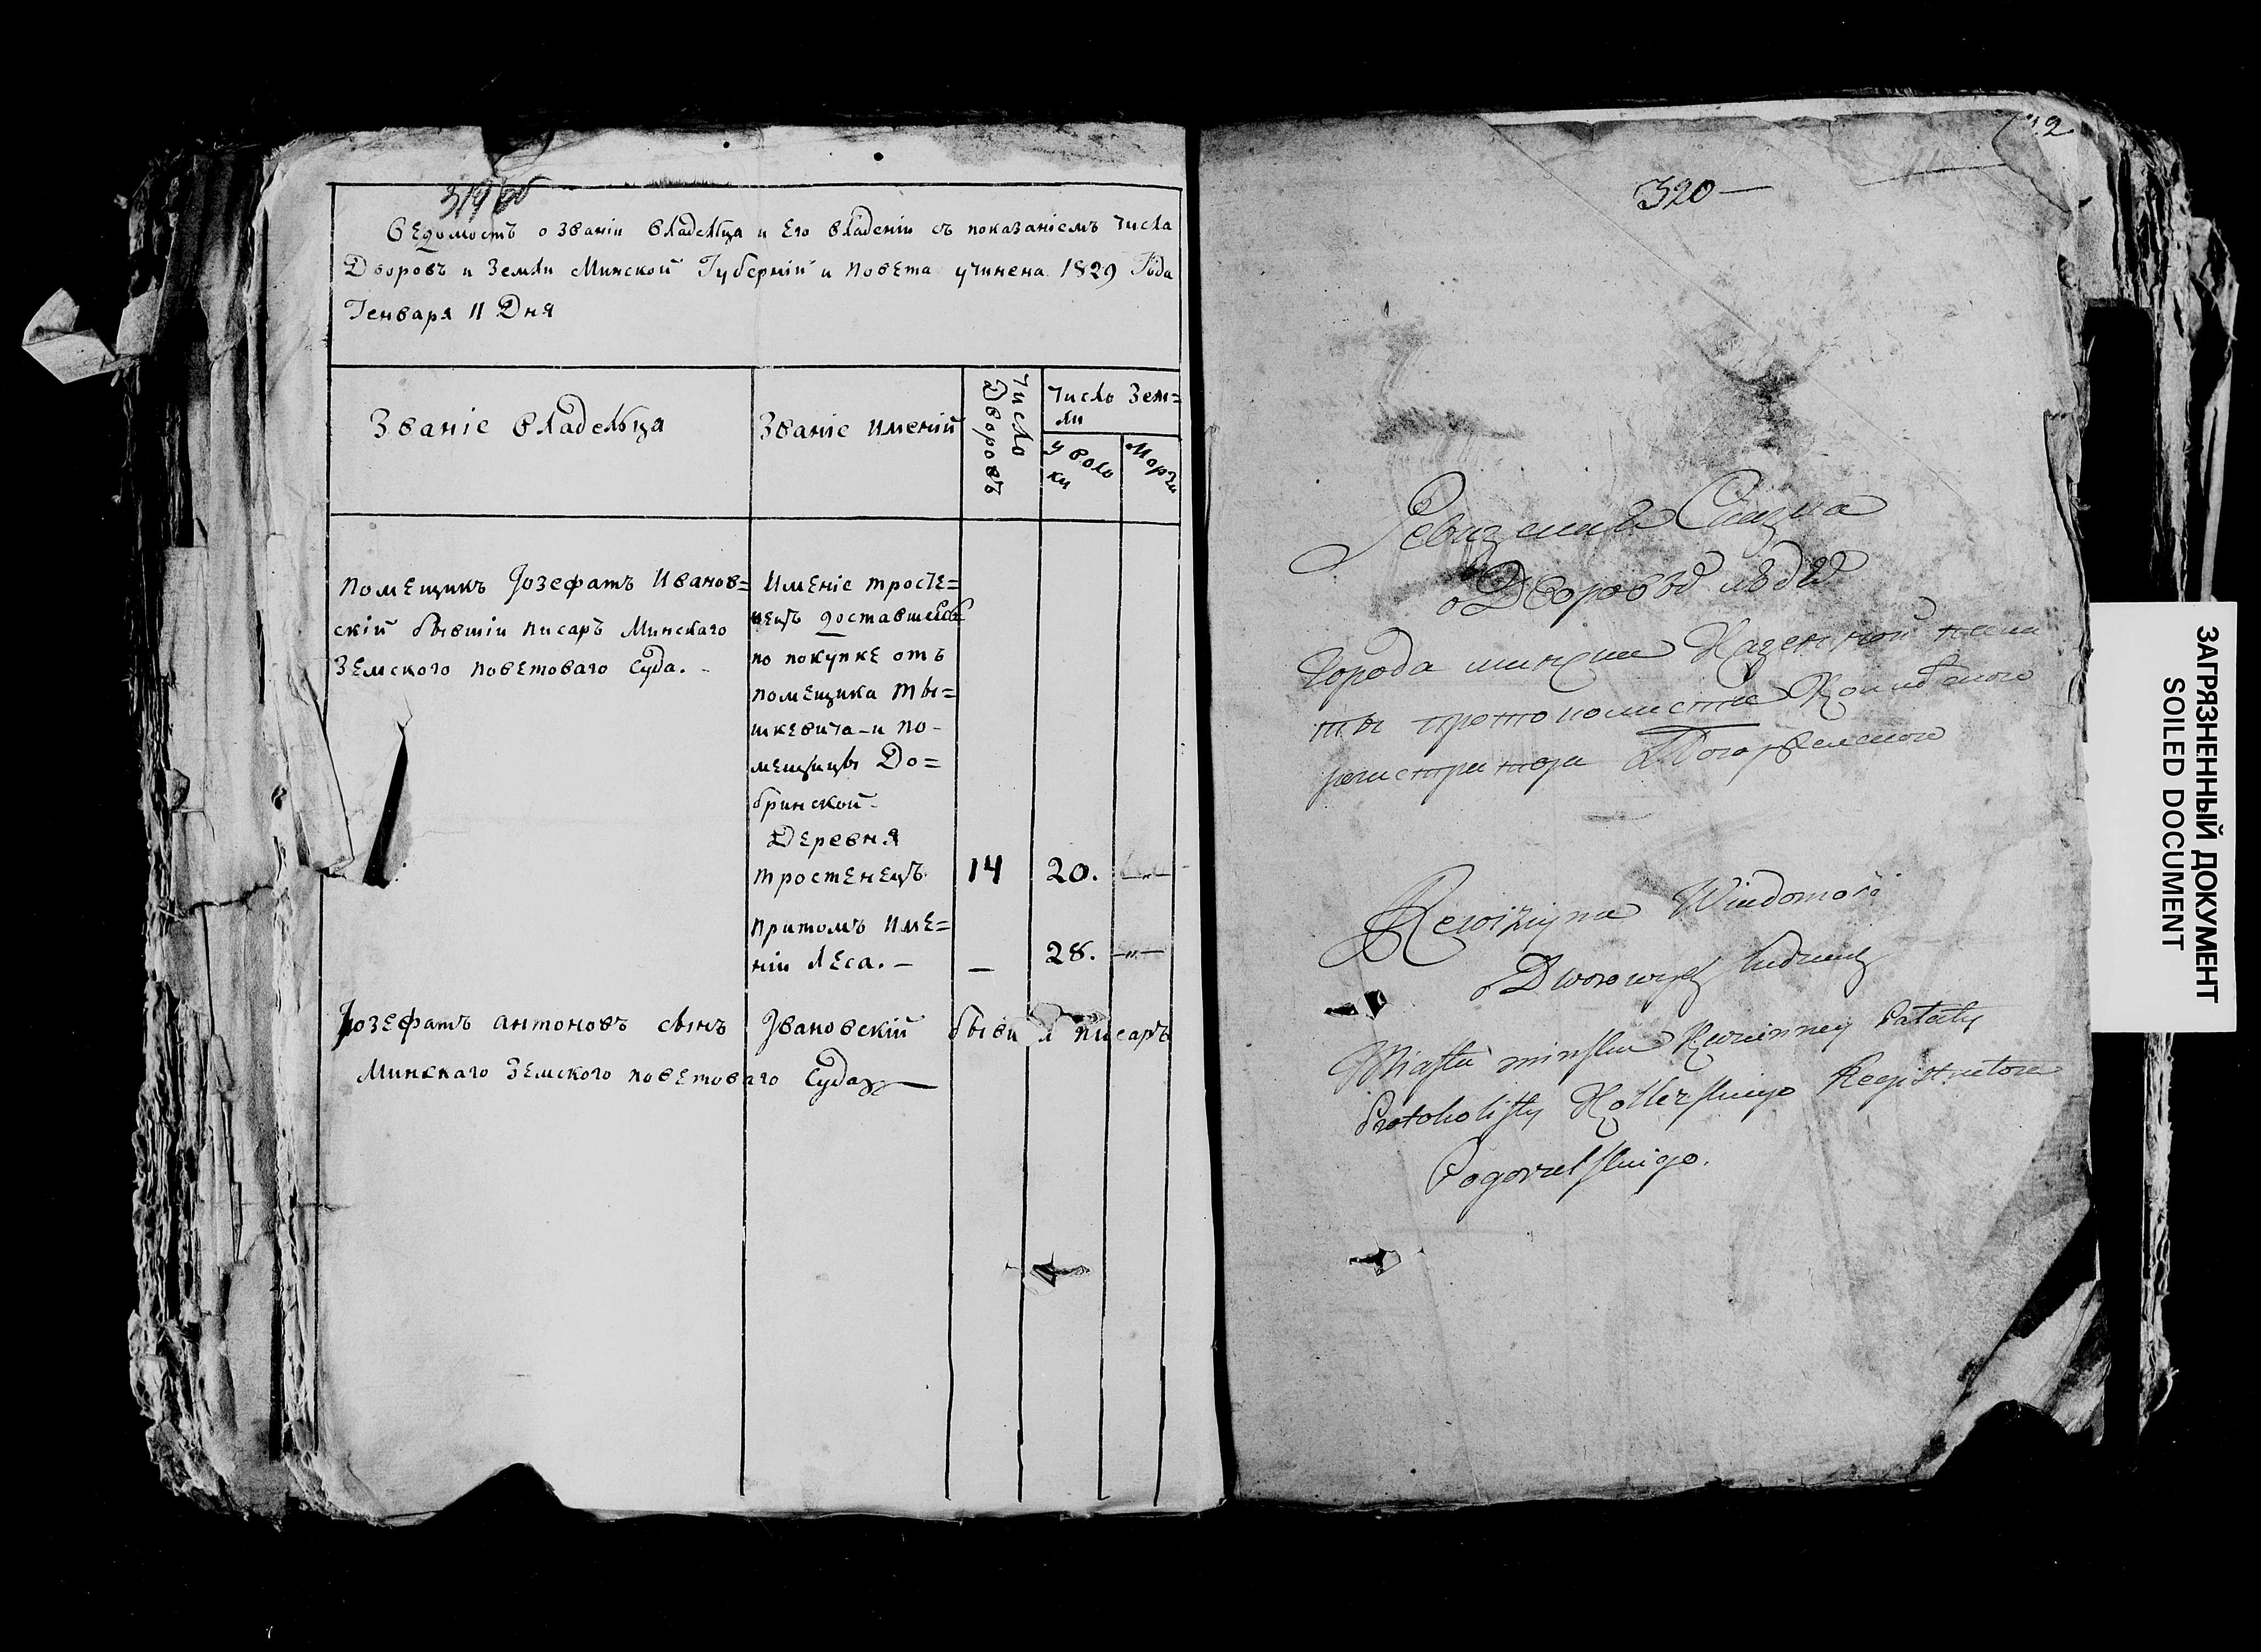 319 об
Ведомость о званіи владельца и его владеніи съ показаніемъ числа
Дворовъ и Земли Минской Губерніи и повета учинена 1829 Года
Генваря 11 Дня
Званіе владельца
Званіе имений
Число Дворовъ
Число Зем=
ли
уволо
ки
Морги
Помещикъ Іозефатъ Иванов=
скій бывшіи писаръ Минскаго
Земского поветоваго Суда. -
Именіе тросте=
нецъ доставшееся
по покупке отъ
помещика Ты=
шкевича - и по-
мещицы До=
бринской -
Деревня
тростенецъ 14 20. —"—
притомъ име=
ніи леса. - — 28. —"—
Іозефатъ антоновъ сынъ Ивановскій бывш й писаръ
Минскаго Земского поветоваго Суда
320 —
Ревизская Сказка
о Дворовыхъ людей
города минска Казенной пала
ты протоколиста Колежского
регистратора Погоржелского
Rewizyina Wiadomość
o Dworowych ludziach
Miasta minska Kazionney Pałaty
Protokolisty Kolleżskiego Registratora
Pogorzelskiego.
ЗАГРЯЗНЕННЫЙ ДОКУМЕНТ
SOILED DOCUMENT